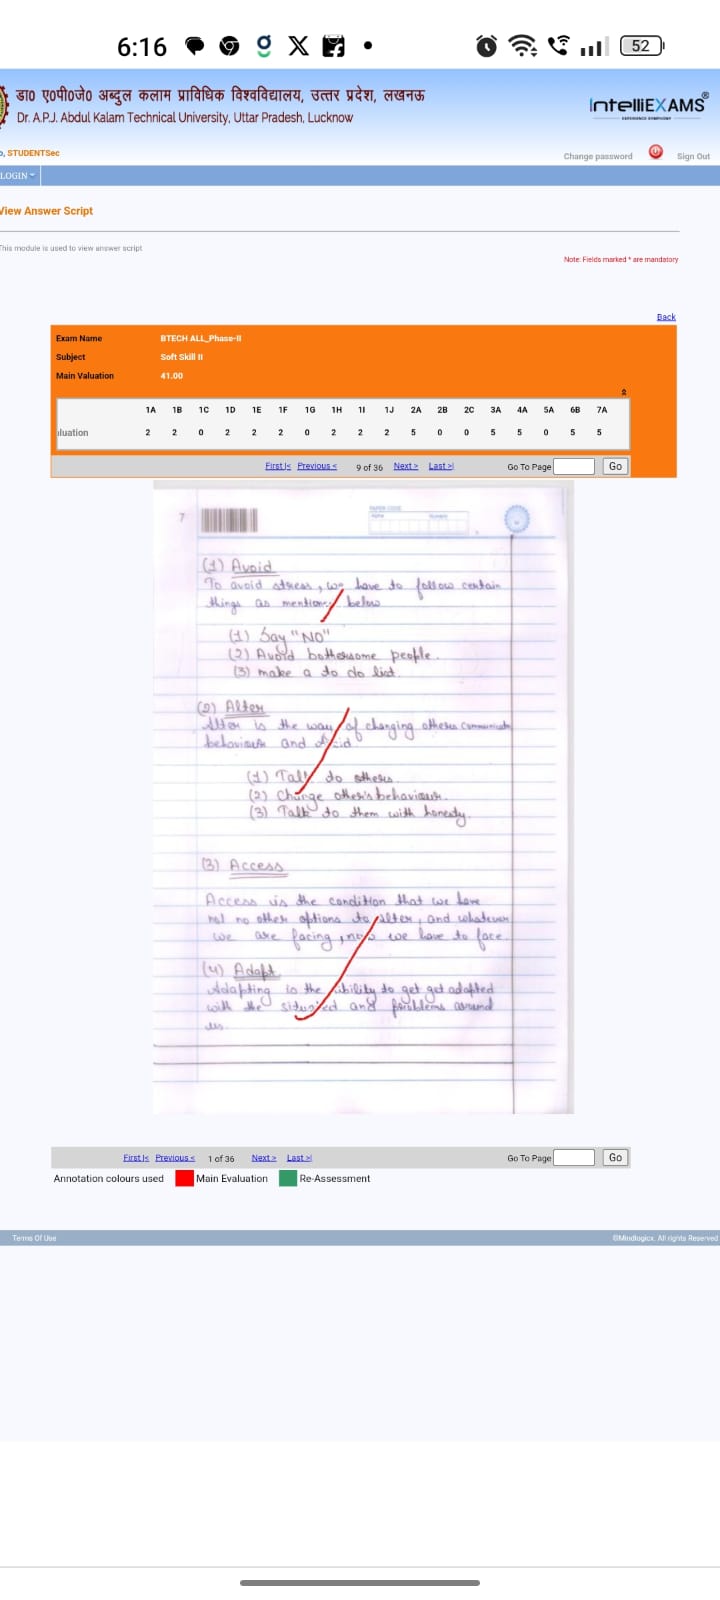 6:16
52
डा० ए०पी०जे० अब्दुल कलाम प्राविधिक विश्वविद्यालय, उत्तर प्रदेश, लखनऊ
Dr. A.P.J. Abdul Kalam Technical University, Uttar Pradesh, Lucknow
IntelliEXAMS®
o, STUDENTSec
Change password
Sign Out
LOGIN
View Answer Script
This module is used to view answer script
Note: Fields marked * are mandatory
Back
Exam Name BTECH ALL_Phase-II
Subject Soft Skill II
Main Valuation 41.00
1A 1B 1C 1D 1E 1F 1G 1H 1I 1J 2A 2B 2C 3A 4A 5A 6B 7A
aluation 2 2 0 2 2 2 0 2 2 2 5 0 0 5 5 0 5 5
First|< Previous < 9 of 36 Next > Last >| Go To Page Go
7
PAPER CODE
(1) Avoid
To avoid stress, we have to follow certain
things as mention below
(1) Say "NO"
(2) Avoid bothersome people.
(3) make a to do list.
(2) Alter
Alter is the way of changing others communicate
behaviour and
(1) Talk to others.
(2) Change other's behaviour.
(3) Talk to them with honesty.
(3) Access
Access is the condition that we have
not no other options to alter, and whatever
we are facing, now we have to face.
(4) Adapt
Adapting is the ability to get get adapted
with the and problems around
us.
First|< Previous < 1 of 36 Next > Last >| Go To Page Go
Annotation colours used Main Evaluation Re-Assessment
Terms Of Use
©Mindlogicx. All rights Reserved